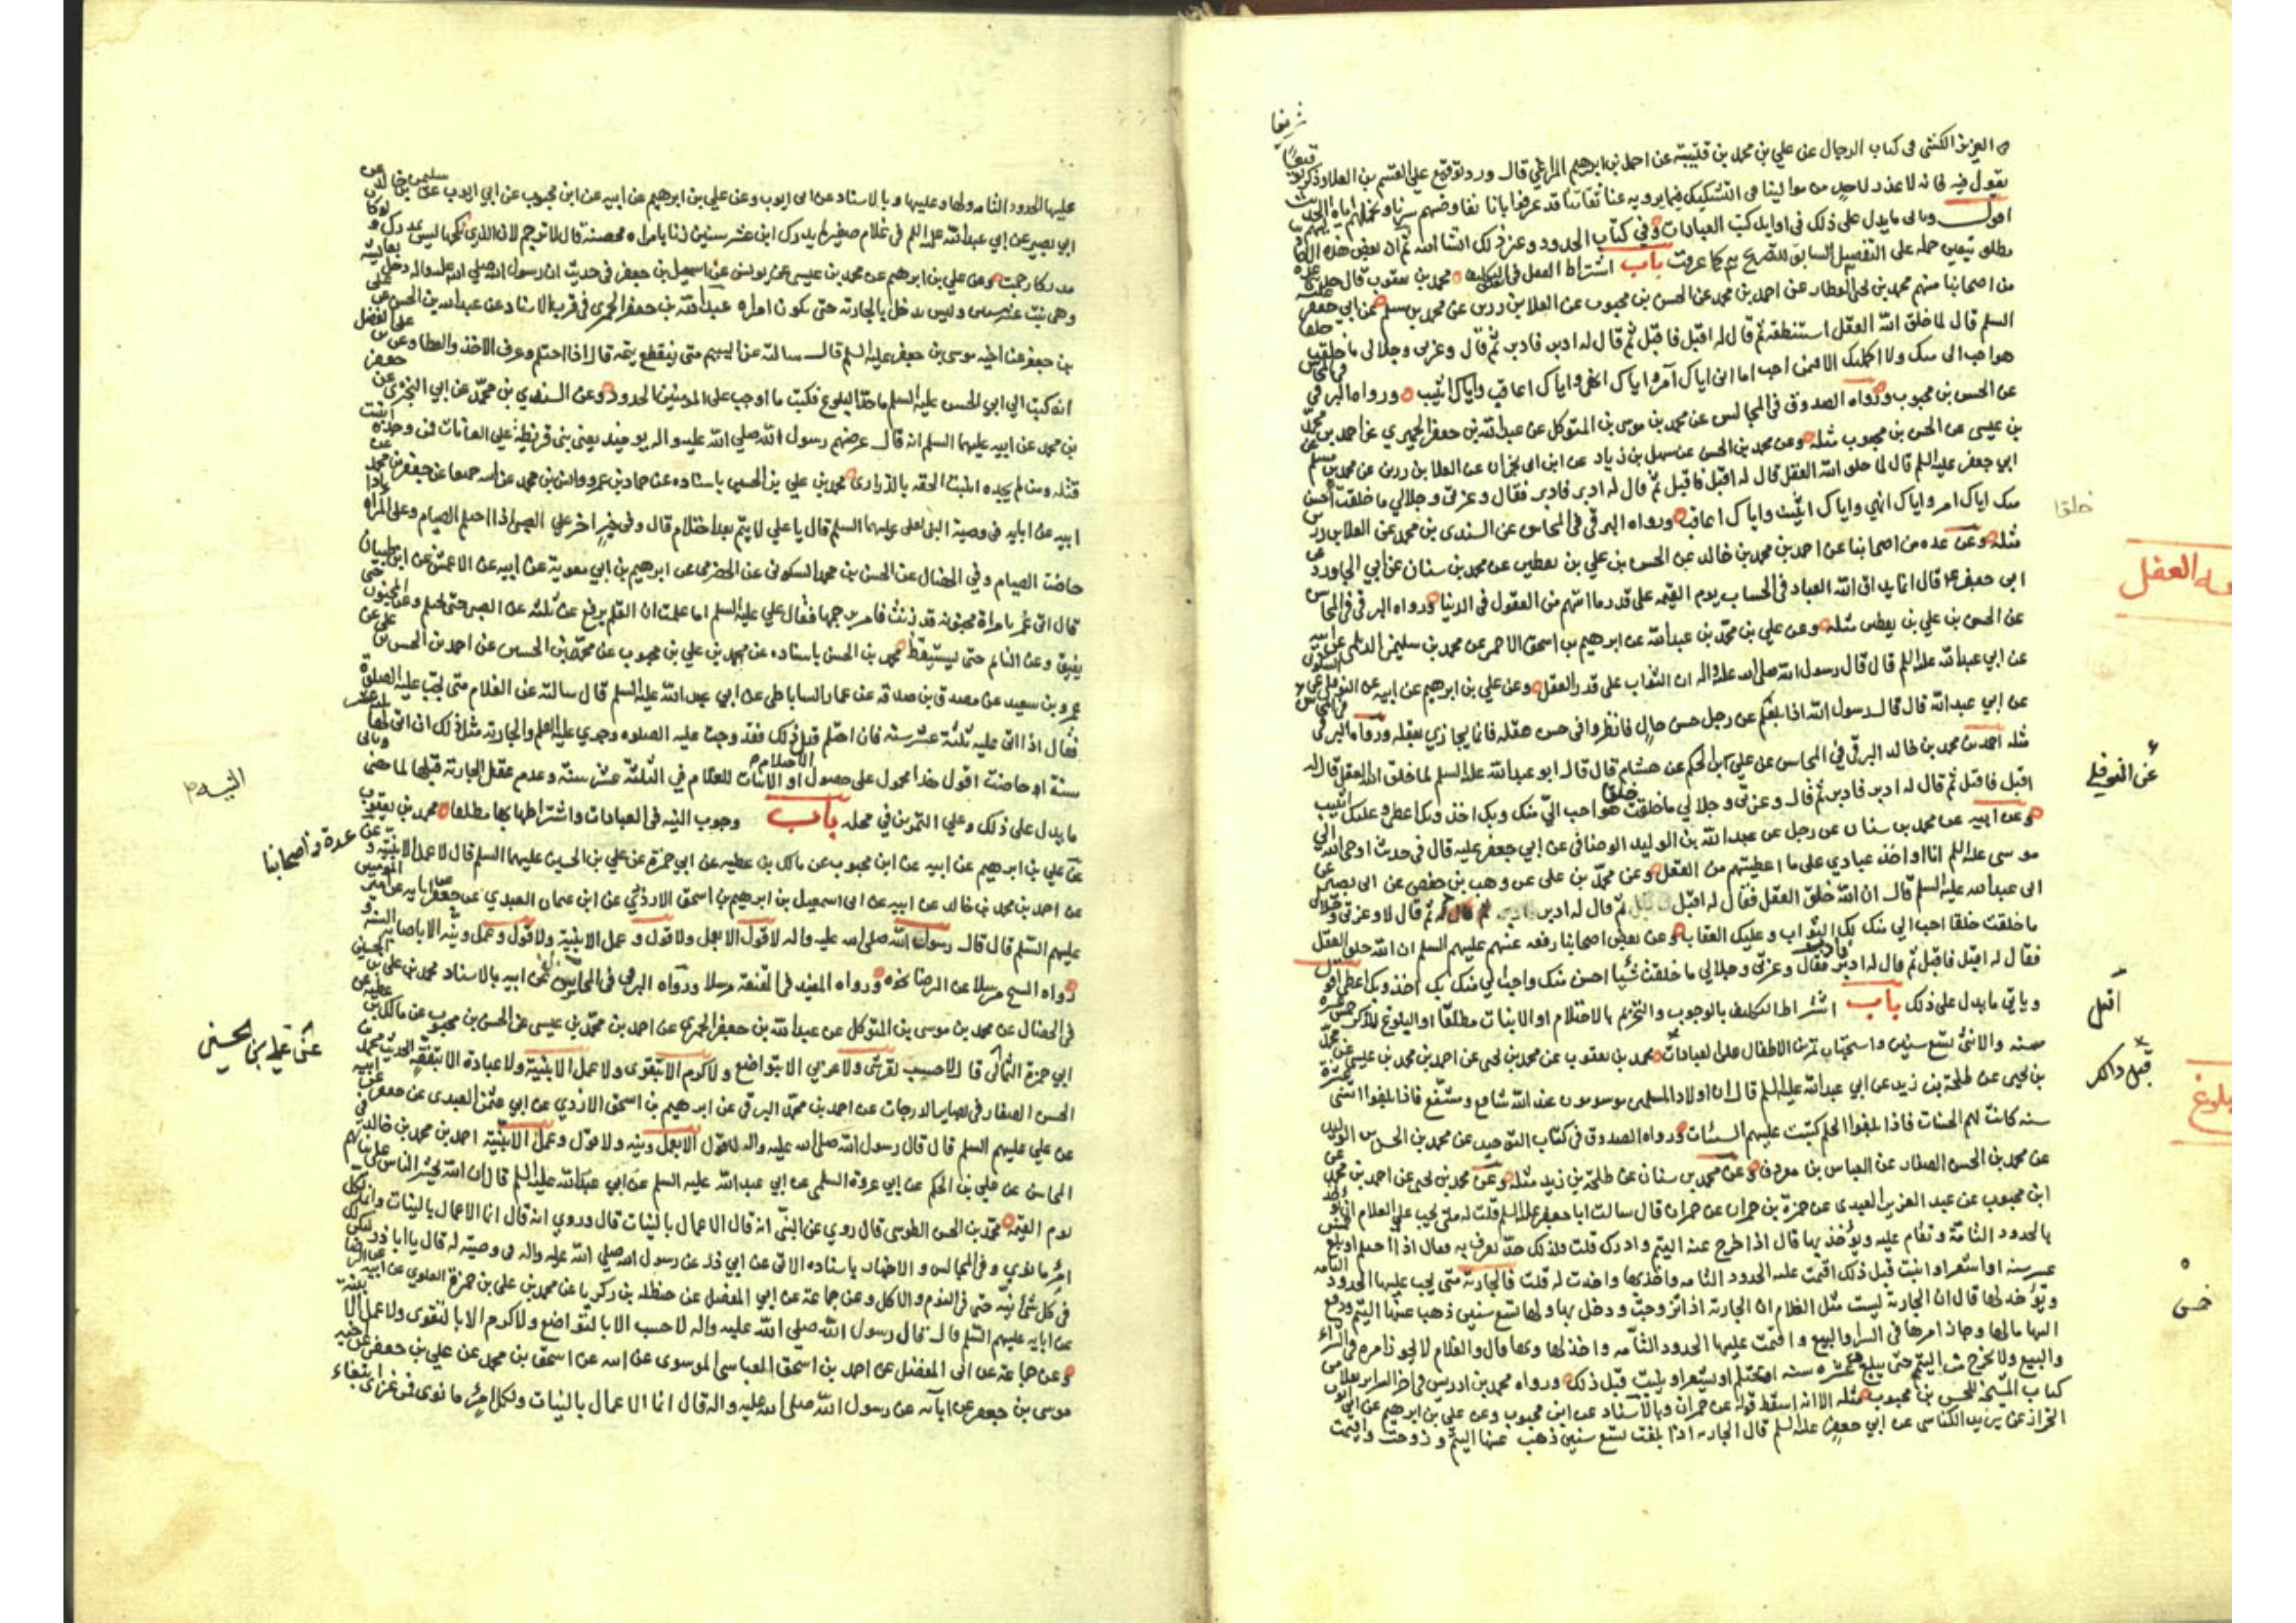 العزيز الكشي في كتاب الرجال عن علي بن محمد بن قتيبة عن احمد بن ابرهيم المراغي قال ورد توقيع على القسم بن العلا وذكر
يقول فيه فانه لا عذر لاحد من موالينا في التشكيك فيما يرويه عنا ثقاتنا قد عرفوا بانا نفاوضهم سرنا ونحملهم اياه اليهم
اقول وياتي ما يدل على ذلك في اوايل كتب العبادات وفي كتاب الحدود وغير ذلك انشا الله ثم ان بعض هذه
مطلق تبعين حمله على التفصيل السابق للتصريح به كما عرفت باب اشتراط العقل في التكليف محمد بن يعقوب قال
من اصحابنا منهم محمد بن يحيى العطار عن احمد بن محمد عن الحسن بن محبوب عن العلا بن رزين عن محمد بن مسلم عن ابي جعفر
السلم قال لما خلق الله العقل استنطقه ثم قال له اقبل فاقبل ثم قال له ادبر فادبر ثم قال وعزتي وجلالي ما خلقت
هو احب الي منك ولا اكملتك الا فيمن احب اما اني اياك آمر واياك انهى واياك اعاقب واياك اثيب ورواه البرقي
عن الحسن بن محبوب ورواه الصدوق في المجالس عن محمد بن موسى بن المتوكل عن عبد الله بن جعفر الحميري عن احمد بن محمد
بن عيسى عن الحسن بن محبوب مثله وعن محمد بن الحسن عن سهل بن زياد عن ابن ابي نجران عن العلا بن رزين عن محمد بن مسلم
ابي جعفر عليه السلم قال لما خلق الله العقل قال له اقبل فاقبل ثم قال له ادبر فادبر فقال وعزتي وجلالي ما خلقت احسن
منك اياك امر واياك انهي واياك اثيب واياك اعاقب ورواه البرقي في المحاسن عن السندي بن محمد عن العلا بن رزين
مثله وعن عدة من اصحابنا عن احمد بن محمد بن خالد عن الحسن بن علي بن يقطين عن محمد بن سنان عن ابي الجارود
ابي جعفر ع قال انما يداق الله العباد في الحساب يوم القيمة على قدر ما اتيهم من العقول في الدنيا ورواه البرقي في المحاسن
عن الحسن بن علي بن يقطين مثله وعن علي بن محمد بن عبد الله عن ابرهيم بن اسحق الاحمر عن محمد بن سليمن الديلمي عن ابيه
عن ابي عبد الله عليه السلم قال قال رسول الله صلى الله عليه واله ان الثواب على قدر العقل وعن علي بن ابرهيم عن ابيه عن النوفلي عن السكوني
عن ابي عبد الله قال قال رسول الله اذا بلغكم عن رجل حسن حال فانظروا في حسن عقله فانما يجازي بعقله ورواه البرقي
مثله احمد بن محمد بن خالد البرقي في المحاسن عن علي بن الحكم عن هشام قال قال ابو عبد الله عليه السلم لما خلق الله العقل قال له
اقبل فاقبل ثم قال له ادبر فادبر ثم قال وعزتي وجلالي ما خلقت خلقا هو احب الي منك وبك اخذ وبك اعطي وعليك اثيب
وعن ابيه عن محمد بن سنان عن رجل عن عبد الله بن الوليد الوصافي عن ابي جعفر عليه قال في حديث اوحى الله الى
موسى عليه السلم انا اواخذ عبادي على ما اعطيتهم من العقل وعن محمد بن علي عن وهب بن حفص عن ابي بصير عن
ابي عبد الله عليه السلم قال ان الله خلق العقل فقال له اقبل فاقبل ثم قال له ادبر فادبر ثم قال لا وعزتي وجلالي
ما خلقت خلقا احب الي منك لك الثواب وعليك العقاب وعن بعض اصحابنا رفعه عنهم عليهم السلم ان الله خلق العقل
فقال له اقبل فاقبل ثم قال له ادبر فادبر فقال وعزتي وجلالي ما خلقت شيئا احسن منك واحب الي منك بك اخذ وبك اعطي اقول
وياتي ما يدل على ذلك باب اشتراط التكليف بالوجوب والتحريم بالاحتلام او الانبات مطلقا او البلوغ للذكر خمس عشرة
سنه والانثى تسع سنين واستحباب تمرين الاطفال على العبادات محمد بن يعقوب عن محمد بن يحيى عن احمد بن محمد بن عيسى عن محمد
بن يحيى عن طلحة بن زيد عن ابي عبد الله عليه السلم قال ان اولاد المسلمين موسومون عند الله شافع ومشفع فاذا بلغوا اثنتي عشرة
سنه كانت لهم الحسنات فاذا بلغوا الحلم كتبت عليهم السيئات ورواه الصدوق في كتاب التوحيد عن محمد بن الحسن بن الوليد
عن محمد بن الحسن الصفار عن العباس بن معروف عن محمد بن سنان عن طلحة بن زيد مثله وعن محمد بن يحيى عن احمد بن محمد عن
ابن محبوب عن عبد العزيز العبدي عن حمزة بن حمران عن حمران قال سالت ابا جعفر عليه السلم قلت له متى يجب على الغلام ان يؤخذ
بالحدود التامة وتقام عليه ويؤخذ بها قال اذا خرج عنه اليتم وادرك قلت فلذلك حد يعرف به فقال اذا احتلم او بلغ خمس
عشر سنه او اشعر او انبت قبل ذلك اقيمت عليه الحدود التامه واخذ بها واخذت له قلت فالجارية متى يجب عليها الحدود التامه
ويؤخذ لها قال ان الجارية ليست مثل الغلام ان الجارية اذا تزوجت ودخل بها ولها تسع سنين ذهب عنها اليتم ودفع
اليها مالها وجاز امرها في الشرا والبيع واقيمت عليها الحدود التامه واخذ لها وبها قال والغلام لا يجوز امره في الشراء
والبيع ولا يخرج من اليتم حتى يبلغ خمس عشره سنه او يحتلم او يشعر او ينبت قبل ذلك ورواه محمد بن ادريس في اخر السراير نقلا من
كتاب المشيخة للحسن بن محبوب مثله الا انه اسقط قوله عن حمران وبالاسناد عن ابن محبوب وعن علي بن ابرهيم عن ابي ايوب
الخراز عن يزيد الكناسي عن ابي جعفر عليه السلم قال الجارية اذا بلغت تسع سنين ذهب عنها اليتم وزوجت واقيمت
خلقا
العقل
عن النوفلي
اقبل
بلوغ
عليها الحدود التامه ولها وعليها وبالاسناد عن ابي ايوب وعن علي بن ابرهيم عن ابيه عن ابن محبوب عن ابي ايوب عن سليمن بن خالد عن
ابي بصير عن ابي عبد الله عليه السلم في غلام صغير لم يدرك ابن عشر سنين زنا بامراه محصنة قال لا ترجم لان الذي نكحها ليس بمدرك ولو كان
مدركا رجمت وعن علي بن ابرهيم عن محمد بن عيسى عن يونس عن اسمعيل بن جعفر في حديث ان رسول الله صلى الله عليه واله دخل بعايشه
وهي بنت عشر سنين وليس يدخل بالجارية حتى تكون امراه عبد الله بن جعفر الحميري في قرب الاسناد عن عبد الله بن الحسن عن علي
بن جعفر عن اخيه موسى بن جعفر عليه السلم قال سالته عن اليتيم متى ينقطع يتمه قال اذا احتلم وعرف الاخذ والعطا وعن علي بن الفضل
انه كتب الى ابي الحسن عليه السلم ما حد البلوغ فكتب ما اوجب على المؤمنين الحدود وعن السندي بن محمد عن ابي البختري عن جعفر
بن محمد عن ابيه عليهما السلم انه قال عرضهم رسول الله صلى الله عليه واله يومئذ يعني بني قريظة على العانات فمن وجده انبت
قتله ومن لم يجده انبت الحقه بالذراري محمد بن علي بن الحسين باسناده عن حماد بن عمرو وانس بن محمد عن ابيه جميعا عن جعفر بن محمد
ابيه عن ابايه في وصية النبي لعلي عليهما السلم قال يا علي لا يتم بعد احتلام قال وفي خبر اخر على الصبي اذا احتلم الصيام وعلى المراه اذا
حاضت الصيام وفي الخصال عن الحسن بن محمد السكوني عن الحضرمي عن ابرهيم بن ابي معوية عن ابيه عن الاعمش عن ابن ظبيان
قال اتي عمر بامراة مجنونه قد زنت فامر برجمها فقال علي عليه السلم اما علمت ان القلم يرفع عن ثلثه عن الصبي حتى يحتلم وعن المجنون حتى
يفيق وعن النايم حتى يستيقظ محمد بن الحسن باسناده عن محمد بن علي بن محبوب عن محمد بن الحسين عن احمد بن الحسن بن علي عن
عمرو بن سعيد عن مصدق بن صدقه عن عمار الساباطي عن ابي عبد الله عليه السلم قال سالته عن الغلام متى يجب عليه الصلوة
فقال اذا اتى عليه ثلثة عشر سنه فان احتلم قبل ذلك فقد وجبت عليه الصلوه وجرى عليه القلم والجارية مثل ذلك ان اتى لها ثلث عشر
سنة او حاضت اقول هذا محمول على حصول الاحتلام او الانبات للغلام في الثلثة عشر سنة وعدم عقل الجارية قبلها لما مضى وياتي
ما يدل على ذلك وعلى التمرين في محله باب وجوب النيه في العبادات واشتراطها بها مطلقا محمد بن يعقوب
عن علي بن ابرهيم عن ابيه عن ابن محبوب عن مالك بن عطيه عن ابي حمزة عن علي بن الحسين عليهما السلم قال لا عمل الا بنية و
عن احمد بن محمد بن خالد عن ابيه عن ابي اسمعيل بن ابرهيم بن اسحق الازدي عن ابي عثمان العبدي عن جعفر عن ابايه عن امير المؤمنين
عليهم السلم قال قال رسول الله صلى الله عليه واله لا قول الا بعمل ولا قول وعمل الا بنية ولا قول وعمل ونية الا باصابة السنه و
رواه الشيخ مرسلا عن الرضا نحوه ورواه المفيد في المقنعة مرسلا ورواه البرقي في المحاسن عن ابيه بالاسناد محمد بن علي بن الحسين
في الخصال عن محمد بن موسى بن المتوكل عن عبد الله بن جعفر الحميري عن احمد بن محمد بن عيسى عن الحسن بن محبوب عن مالك بن عطيه عن
ابي حمزة الثمالي قال لا حسب لقرشي ولا عربي الا بتواضع ولا كرم الا بتقوى ولا عمل الا بنية ولا عبادة الا بتفقه الحديث محمد بن
الحسن الصفار في بصاير الدرجات عن احمد بن محمد البرقي عن ابرهيم بن اسحق الازدي عن ابي عثمن العبدي عن جعفر عن ابيه
عن علي عليهم السلم قال قال رسول الله صلى الله عليه واله لا قول الا بعمل ونية ولا قول وعمل الا بنية احمد بن محمد بن خالد في
المحاسن عن علي بن الحكم عن ابي عروة السلمي عن ابي عبد الله عليه السلم عن ابي عبد الله عليه السلم قال ان الله يحشر الناس على نياتهم
يوم القيمة محمد بن الحسن الطوسي قال روي عن النبي انه قال الاعمال بالنيات قال وروي انه قال انما الاعمال بالنيات وانما لكل
امرئ ما نوى وفي المجالس والاخبار باسناده الاتي عن ابي ذر عن رسول الله صلى الله عليه واله في وصيته له قال يا ابا ذر ليكن لك
في كل شئ نية حتى في النوم والاكل وعن جماعة عن ابي المفضل عن حنظله بن زكريا عن محمد بن علي بن حمزة العلوي عن ابيه عن الرضا
عن ابايه عليهم السلم قال قال رسول الله صلى الله عليه واله لا حسب الا بالتواضع ولا كرم الا بالتقوى ولا عمل الا بنية
وعن جماعة عن ابي المفضل عن احمد بن اسحق العباسي الموسوي عن ابيه عن اسحق بن محمد عن علي بن جعفر عن اخيه
موسى بن جعفر عن ابايه عن رسول الله صلى الله عليه واله قال انما الاعمال بالنيات ولكل امرئ ما نوى فمن غزى ابتغاء
عدة من اصحابنا
عن علي بن الحسين